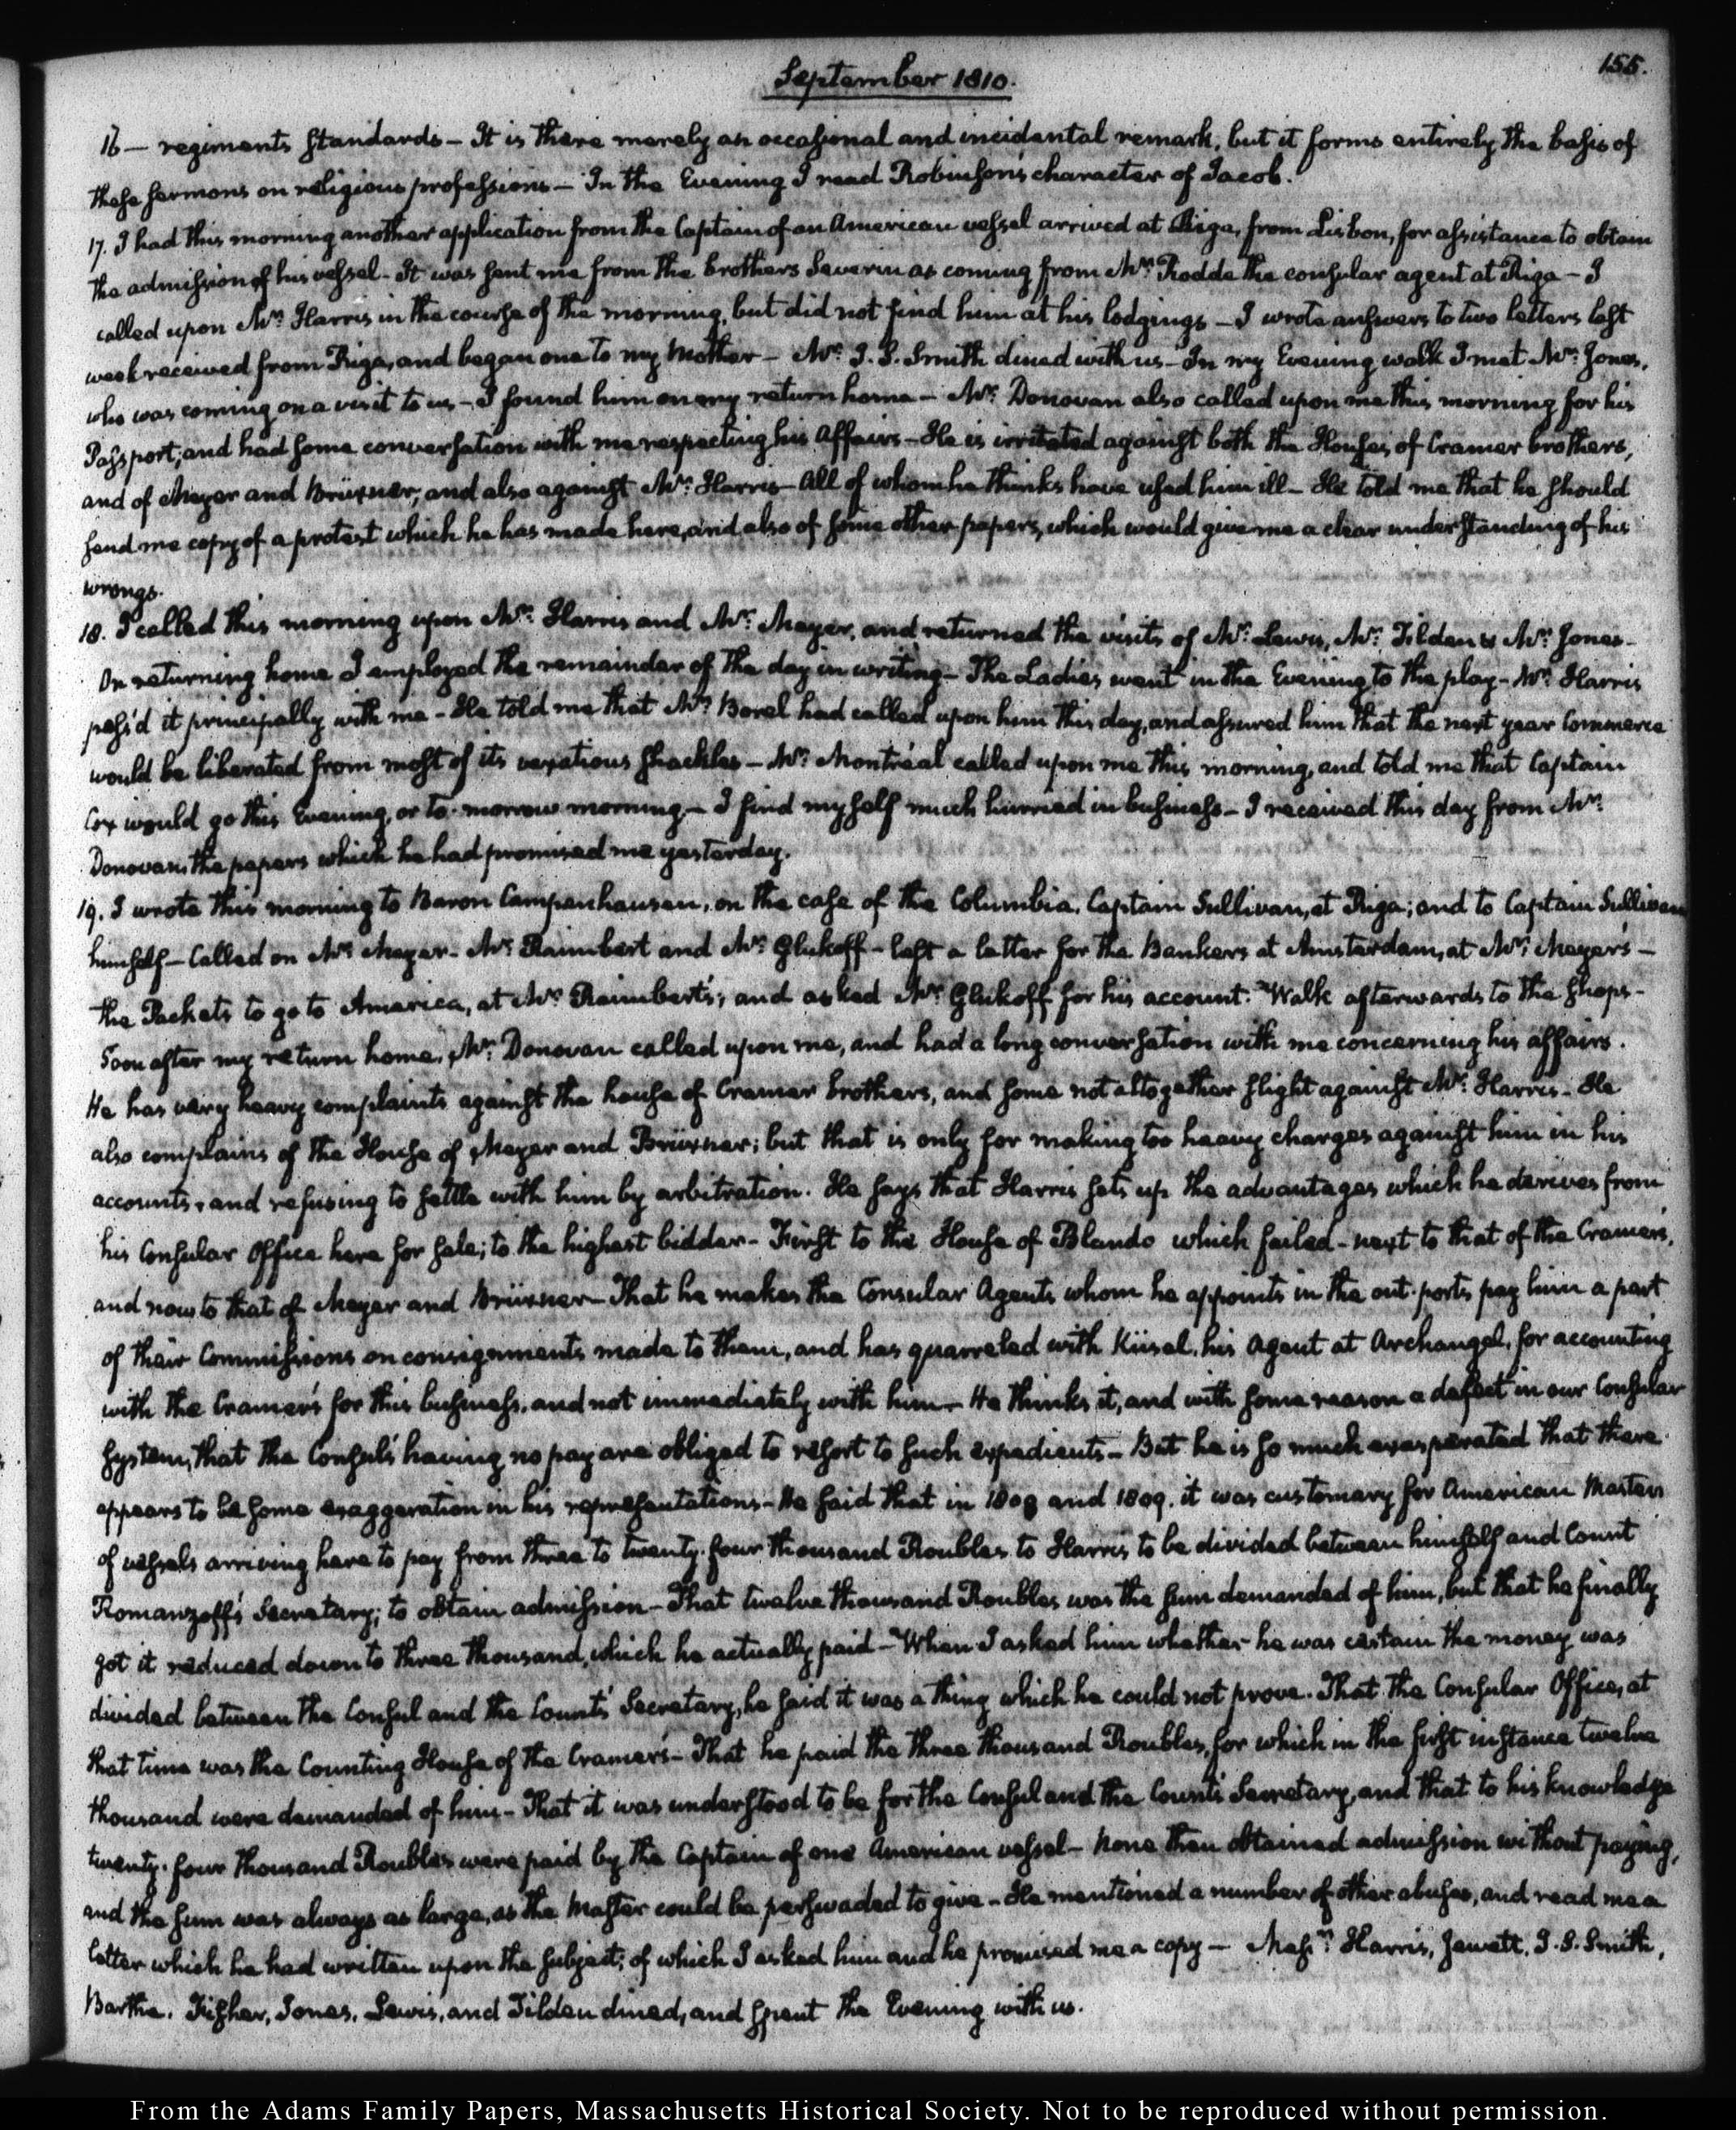 September 1810.
155.
16 — regiments standards – It is there merely an occasional and incidental remark, but it forms entirely the basis of
these sermons on religious professions — In the Evening I read Robinson's character of Jacob.
17. I had this morning another application from the Captain of an American vessel arrived at Riga, from Lisbon, for assistance to obtain
the admission of his vessel – It was sent me from the brothers Severin as coming from Mr. Rodde the consular agent at Riga – I
called upon Mr. Harris in the course of the morning, but did not find him at his lodgings – I wrote answers to two letters last
week received from Riga, and began one to my Mother – Mr. J. S. Smith dined with us – In my Evening walk I met Mr. Jones,
who was coming on a visit to us – I found him on my return home – Mr. Donovan also called upon me this morning for his
Passport; and had some conversation with me respecting his Affairs – He is irritated against both the Houses, of Cramer brothers,
and of Meyer and Brüxner; and also against Mr. Harris – All of whom he thinks have used him ill – He told me that he should
send me copy of a protest which he has made here, and also of some other papers, which would give me a clear understanding of his
wrongs.
18. I called this morning upon Mr. Harris and Mr. Meyer, and returned the visits of Mr. Lewis, Mr. Tilden & Mr. Jones –
On returning home I employed the remainder of the day in writing – The Ladies went in the Evening to the play – Mr. Harris
pass'd it principally with me – He told me that Mr. Borel had called upon him this day, and assured him that the next year Commerce
would be liberated from most of its vexatious shackles – Mr. Montréal called upon me this morning, and told me that Captain
Cox would go this Evening, or to-morrow morning – I find myself much hurried in business – I received this day from Mr.
Donovan, the papers which he had promised me yesterday.
19. I wrote this morning to Baron Campenhausen, on the case of the Columbia, Captain Sullivan, at Riga; and to Captain Sullivan
himself – Called on Mr. Meyer – Mr. Raimbert and Mr. Glukoff – left a letter for the Bankers at Amsterdam, at Mr. Meyer's –
the Packets to go to America, at Mr. Raimbert's; and asked Mr. Glukoff for his account. Walk afterwards to the shops –
Soon after my return home, Mr. Donovan called upon me, and had a long conversation with me concerning his affairs.
He has very heavy complaints against the house of Cramer brothers, and some not altogether slight against Mr. Harris – He
also complains of the House of Meyer and Brüxner; but that is only for making too heavy charges against him in his
accounts, and refusing to settle with him by arbitration. He says that Harris sets up the advantages which he derives from
his Consular Office here for sale; to the highest bidder – First to the House of Blando which failed – next to that of the Cramers,
and now to that of Meyer and Brüxner – That he makes the Consular Agents whom he appoints in the out-ports pay him a part
of their Commissions on consignments made to them, and has quarreled with Küsel, his Agent at Archangel, for accounting
with the Cramer's for this business, and not immediately with him – He thinks it, and with some reason a defect in our Consular
system, that the Consuls having no pay are obliged to resort to such expedients – But he is so much exasperated that there
appears to be some exaggeration in his representations – He said that in 1808 and 1809. it was customary for American Masters
of vessels arriving here to pay from three to twenty-four thousand Roubles to Harris to be divided between himself and Count
Romanzoff's Secretary; to obtain admission – That twelve thousand Roubles was the sum demanded of him, but that he finally
got it reduced down to three thousand, which he actually paid – When I asked him whether he was certain the money was
divided between the Consul and the Count's Secretary, he said it was a thing which he could not prove. That the Consular Office, at
that time was the Counting House of the Cramer's – That he paid the three thousand Roubles, for which in the first instance twelve
thousand were demanded of him – That it was understood to be for the Consul and the Count's Secretary, and that to his knowledge
twenty-four thousand Roubles were paid by the Captain of one American vessel – None then obtained admission without paying,
and the sum was always as large, as the Master could be perswaded to give – He mentioned a number of other abuses, and read me a
letter which he had written upon the subject; of which I asked him and he promised me a copy — Messrs. Harris, Jewett, J. S. Smith,
Barthe, Fisher, Jones, Lewis, and Tilden dined, and spent the Evening with us.
From the Adams Family Papers, Massachusetts Historical Society. Not to be reproduced without permission.